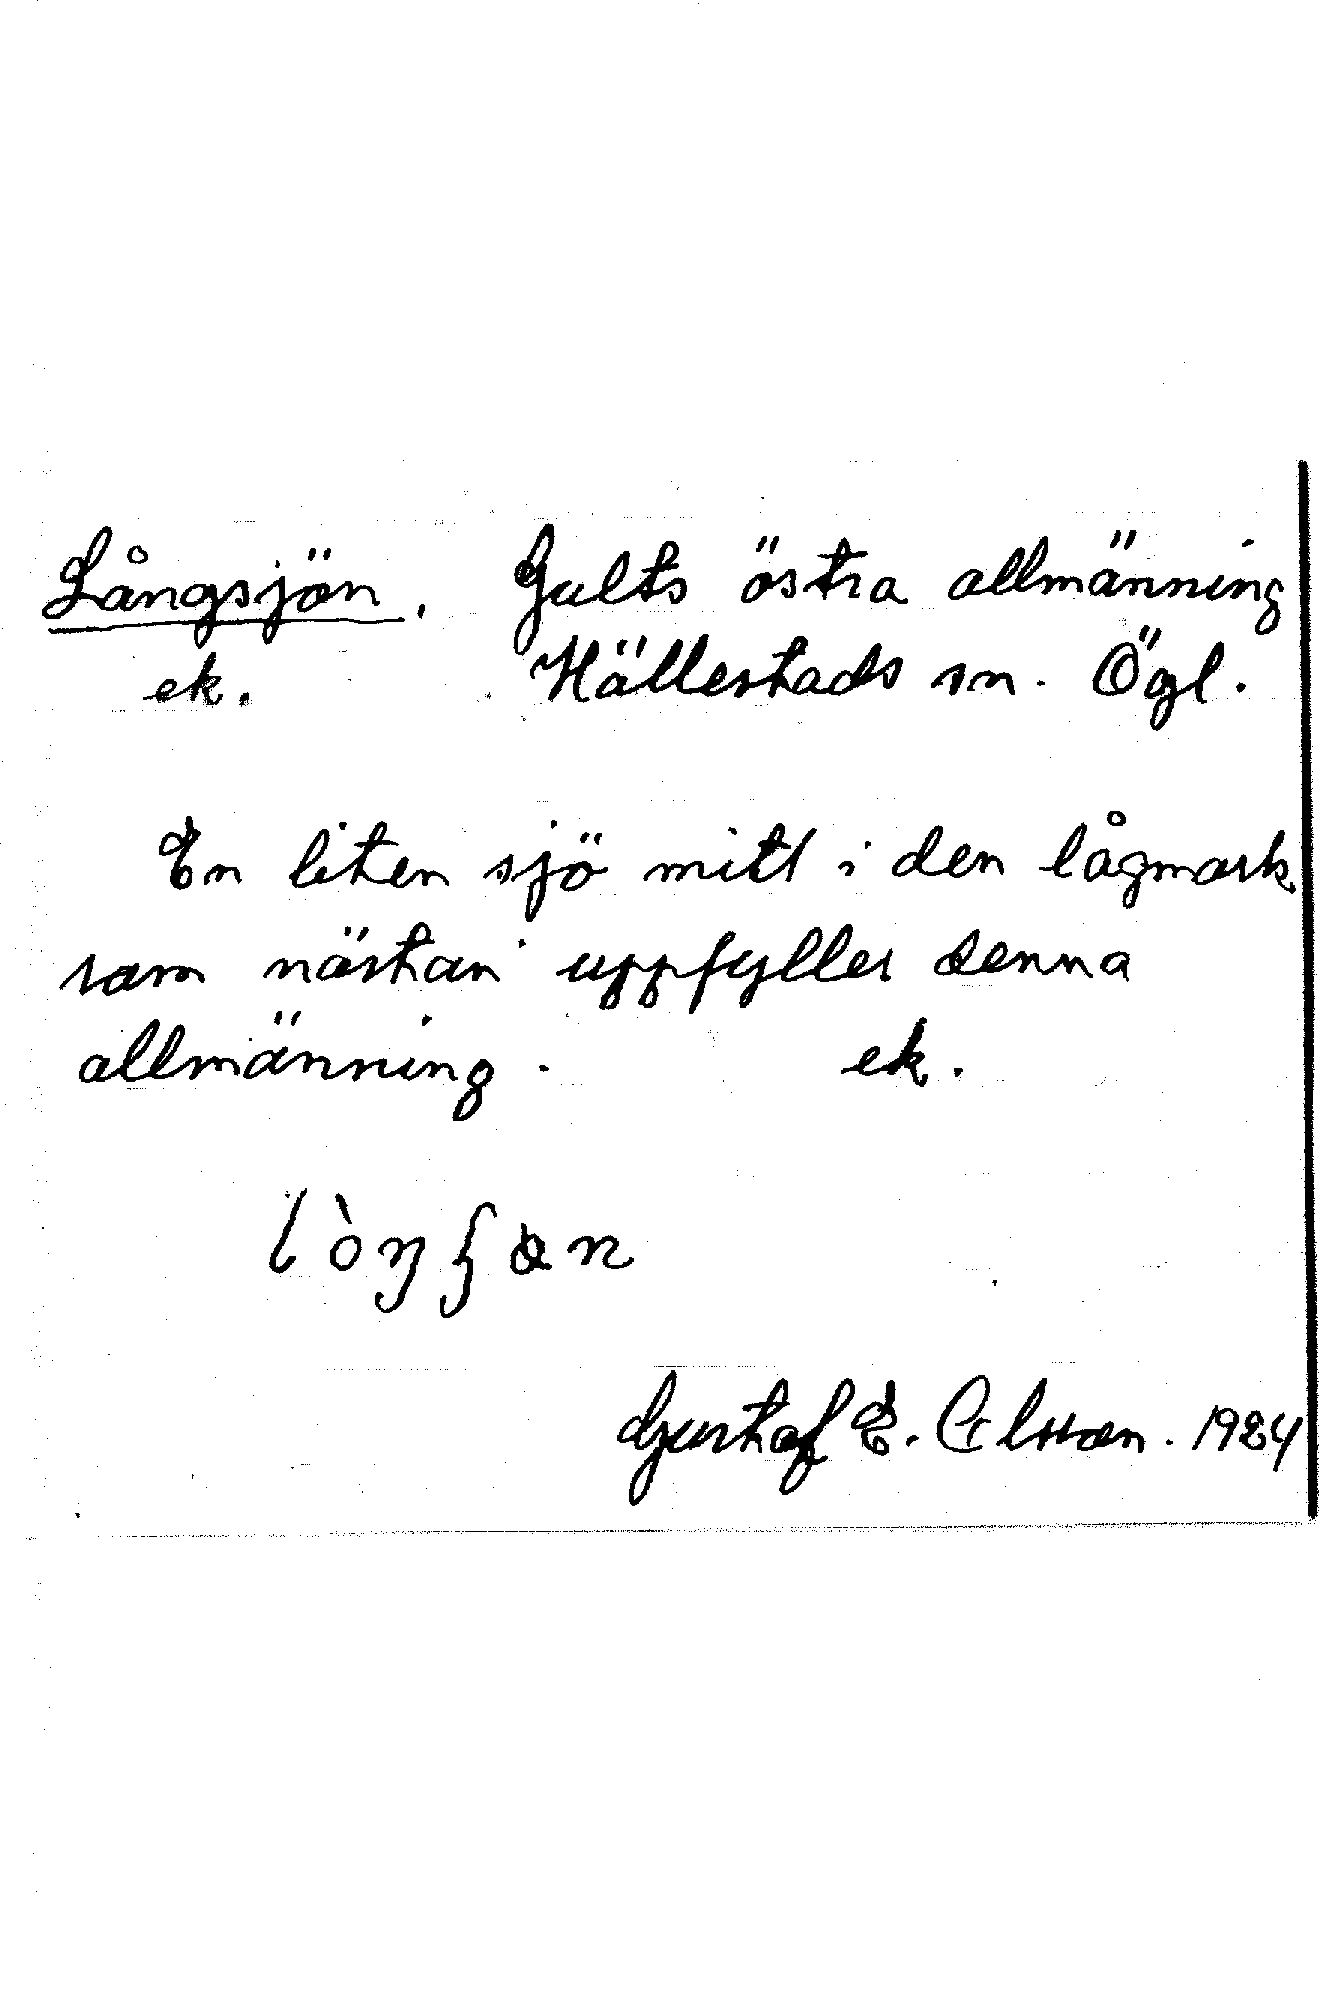 Långsjön. Gults östra allmänning
ek. Hällestads sn. Ögl.
En liten sjö mitt i den lågmark
som nästan uppfyller denna
allmänning. ek.
Gustaf E. Olsson. 1924